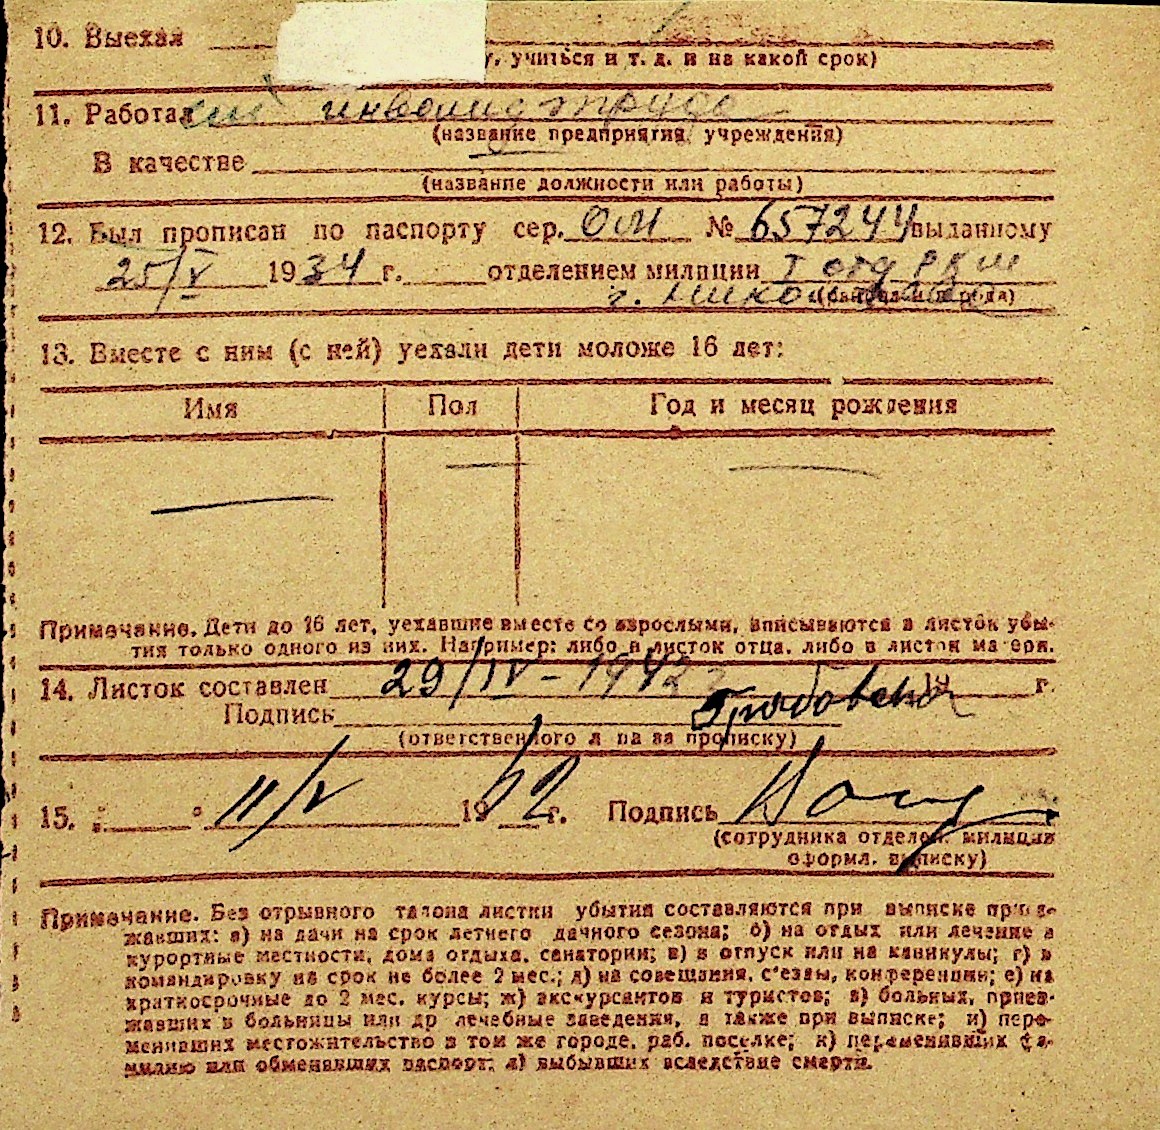 10. Выехал
у, учиться и т. д. и на какой срок)
11. Работал инвалид труда
(название предприятия, учреждения)
В качестве
(название должности или работы)
12. Был прописан по паспорту сер. ОМ № 657244 выданному
25/V 1934 г. отделением милиции 1 отд РКМ
г.
13. Вместе с ним (с ней) уехали дети моложе 16 лет:
Имя Пол Год и месяц рождения
Примечание. Дети до 16 лет, уехавшие вместе со взрослыми, вписываются в листок убы-
тия только одного из них. Например: либо в листок отца, либо в листок матери.
14. Листок составлен 29/IV - 1942 19 г.
Подпись
(ответственного л па за прописку)
15. " " 11/V 1942 г. Подпись
(сотрудника отделен. милиции
оформл. выписку)
Примечание. Без отрывного талона листки убытия составляются при выписке приез-
жавших: а) на дачи на срок летнего дачного сезона; б) на отдых или лечение в
курортные местности, дома отдыха, санатории; в) в отпуск или на каникулы; г) в
командировку на срок не более 2 мес.; д) на совещания, с'езды, конференции; е) на
краткосрочные до 2 мес. курсы; ж) экскурсантов и туристов; з) больных, приез-
жавших в больницы или др лечебные заведения, а также при выписке; и) пере-
менивших местожительство в том же городе, раб. поселке; к) переменивших фа-
милию или обменявших паспорт; л) выбывших вследствие смерти.